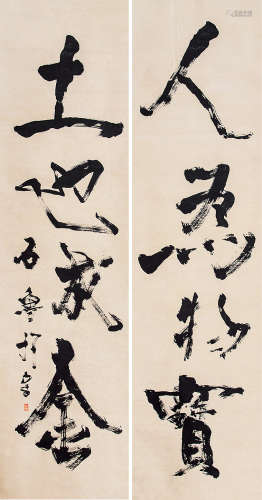 人為物寶
土也成金
石魯於京